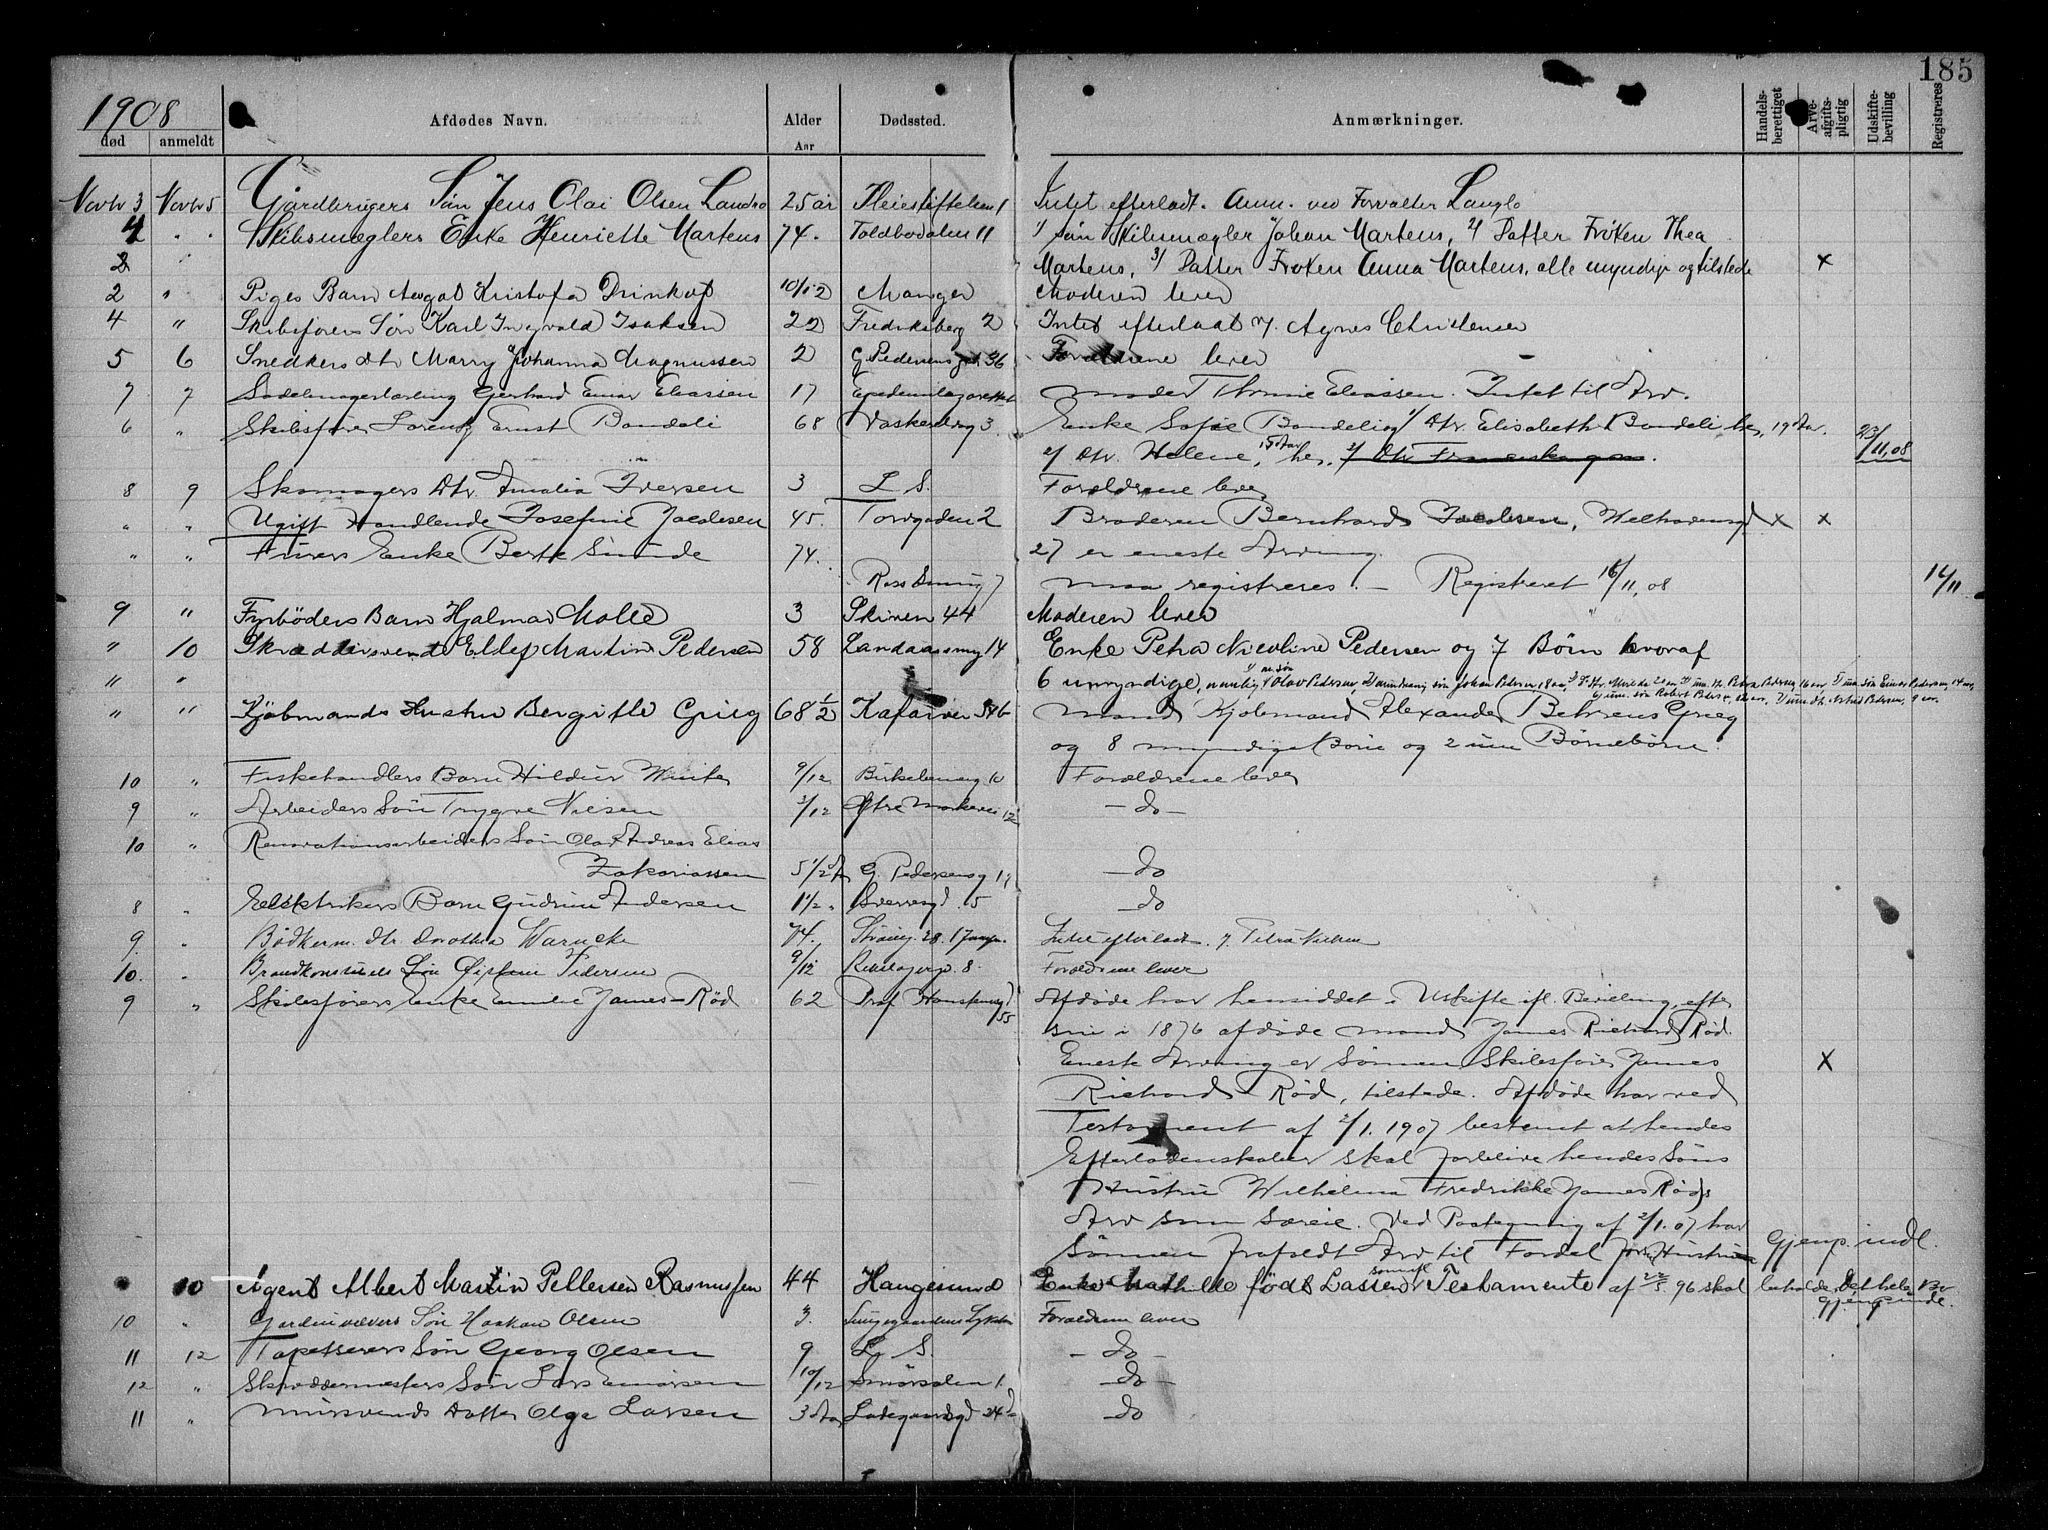 185
1908
død anmeldt Afdødes Navn. Alder Aar Dødssted. Anmærkninger. Handelsberettiget Arveafgiftspligtig Udskiftebevilling Registreres
Novbr 3 Novbr 5 Gårdbrugers Søn Jens Olai Olsen Landro 25 år Pleiestiftelsen 1 Intet efterladt. Anm. ved Forvalter Langlo
4 " " Skibsmæglers Enke Henriette Martens 74. Toldbodalm 11 1/ søn Skibsmægler Johan Martens, 2/ Datter Frøken Thea
2 " Martens, 3/ Datter Frøken Anna Martens, alle myndige og tilstede x
2 " Piges Barn Aagot Kristofa Drinkop 10/12 Manger Moderen lever
4 " Skibsførers Søn Karl Ingvald Isaksen 22 Fredriksberg 2 Intet efterladt v/. Agnes Christensen
5 6 Snedkers dtr Marry Johanna Magnussen 2 G. Pedersens gd. 36 Forældrene lever
7 7 Sadelmagerlærling Gerhard Einar Eliassen 17 Moder Eliassen. Intet til Arv.
6 " Skibsfører Lorentz Ernst Bandeli 68 Vaskerelvg 3. Enke Sofie Bandeli og 1/ Dtr. Elisabeth Bandeli her, 19 Aar. 23/11,08
2/ Dtr. Helene, 15 Aar her.
8 9 Skomagers Dtr. Amalia Iversen 3 L S. Forældrene lever
" " Ugift Handlende Josefine Jacobsen 45. Torvgaden 2 Broderen Bernhard Jacobsen, Welhavensgd x x
" " Murers Enke Berte Sunde 74. 27 er eneste Arving.
maa registreres. – Registreret 16/11,08 16/11
9 " Fyrbøders Barn Hjalmar Molle 3 Skiven 44 Moderen lever
" 10 Skræddersvend Ellef Martin Pedersen 58 Landaasvng 14 Enke Petra Nicoline Pedersen og 7 Børn hvoraf
" " 6 umyndige, nemlig
" " Kjøbmands Hustru Bergitte Grieg 68 1/2 Kalfarvei Mand Kjøbmand Alexander Behrens Grieg
og 8 myndige Børn og 2 um Børnebørn.
10 " Fiskehandlers Barn Hildur Winter 9/12 Birkebeinerg 10 Forældrene lever
9 " Arbeiders Søn Trygve Nilsen 3/12 Øfre Markevei 12 – do –
10 " Renovationsarbeiders Søn Olaf Andreas Elias
Zakariassen 5 1/2 G. Pedersensg 19 – do
8 " Elektrikers Barn Gudrun Andersen 1 1/2 " Sverresgd. 5 – do
9. " Bødkerm. dtr Dorothea Warncke 74. Strangg. 28. Intet efterladt. v/ Petra Nielsen
10. " Brandkonstabels Søn Pedersen 9/12 8. Forældrene lever
9 " Skibsførers Enke Emilie James-Rød 62 Prof. Hansteensgd 55 Afdøde har hensiddet i Uskifte ifl. Bevilling, efter
sin i 1876 afdøde mand James Richard Rød.
Eneste Arving er Sønnen Skibsfører James x
Richard Rød, tilstede. Afdøde har ved
Testament af 2/1. 1907 bestemt at hendes
Efterladenskaber skal forblive hendes Søns
Hustru Wilhelmina Fredrikke James Røds
Arv som Særeie. Ved Paategning af 2/1.07 har
Sønnen frafaldt Arv til Fordel for Hustru Gjenp. indl.
10 Agent Albert Martin Pettersen Rasmussen 44 Haugesund Enke Mathilde født Lassen som ifl. Testamente af 22/5 96 skal beholde det hele Bo
10 " Gardinvævers Søn Haakon Olsen 3. Forældrene lever
11 12 Tapetserers Søn Georg Olsen 9 L. S. – do –
12 " Skræddermesters Søn Lars Einarsen 10/12 Smørsalm 1. – do –
11 " Mursvends Datter Olga Larsen 3 Aar Ladegaardsgd 24 – do